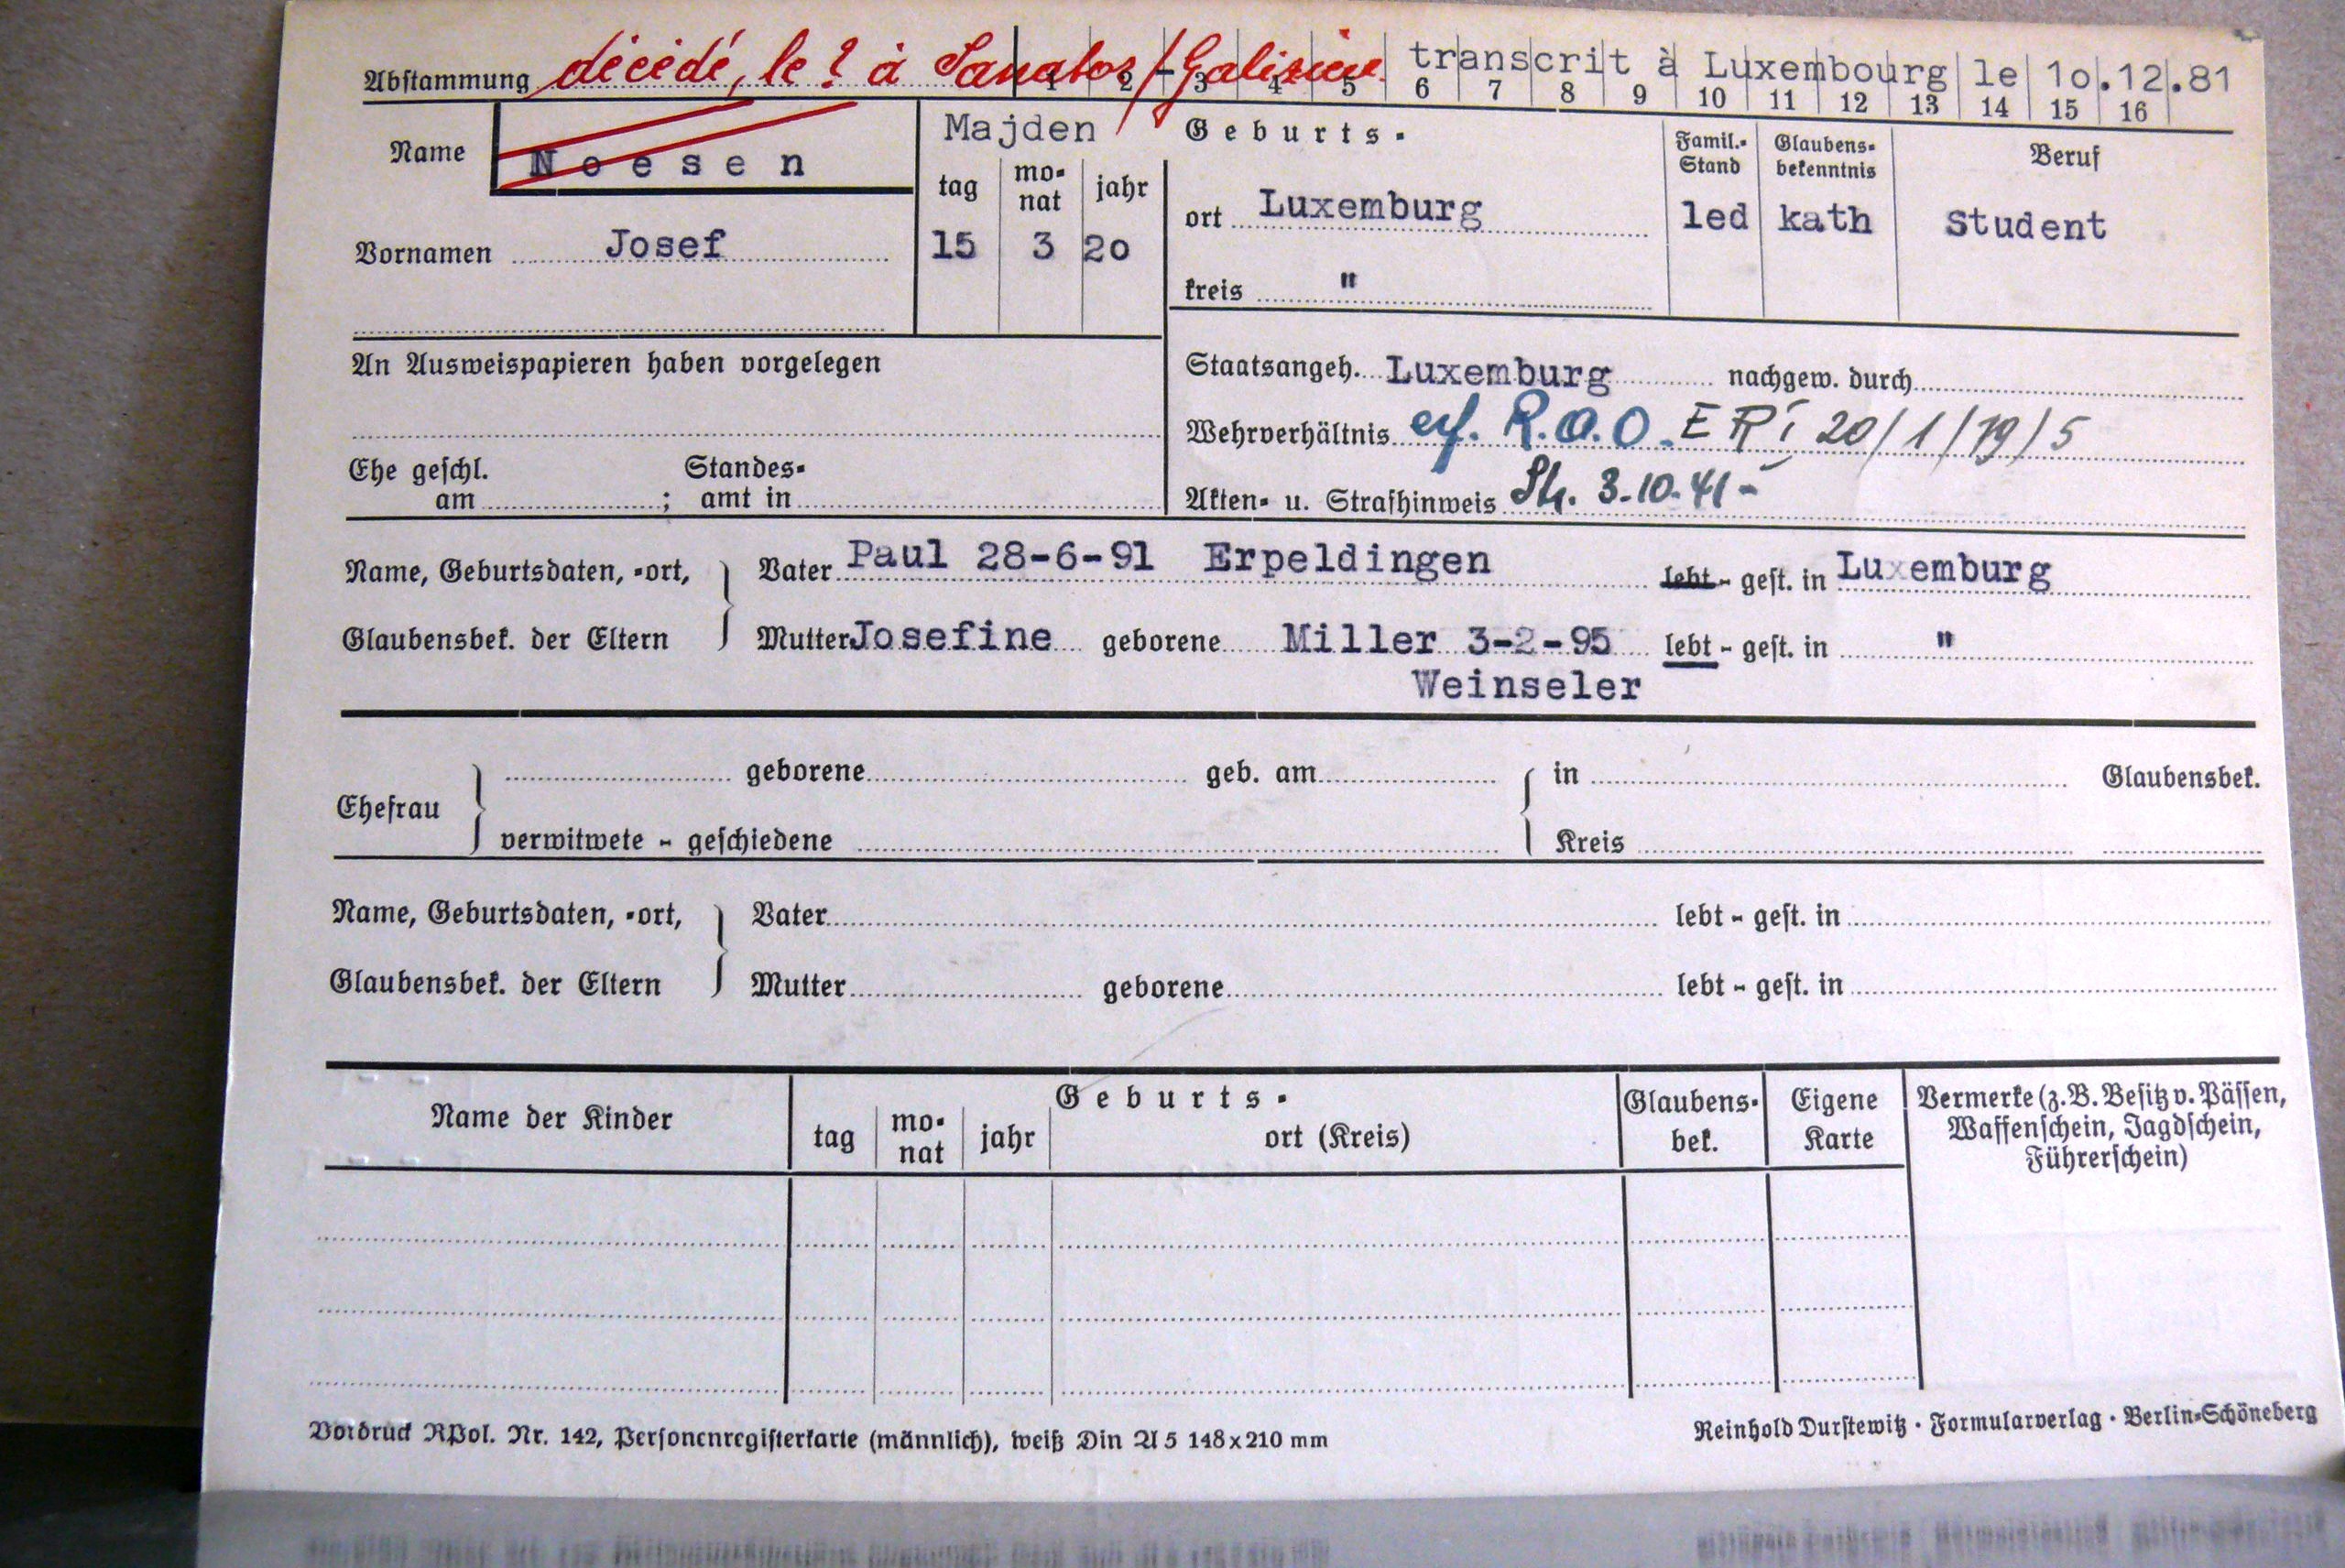 Abstammung décédé, le ? à Sanatos / Galizien. transcrit à Luxembourg le 10.12.81
1 2 3 4 5 6 7 8 9 10 11 12 13 14 15 16
Name Noesen
Majden
Geburts-
tag monat jahr
Famil.-Stand Glaubens-bekenntnis Beruf
Vornamen Josef
15 3 20
ort Luxemburg
led kath Student
kreis "
An Ausweispapieren haben vorgelegen
Staatsangeh. Luxemburg nachgew. durch
Wehrverhältnis erf. R.A.O. E R I 20/1/79/5
Ehe geschl. am ; Standes-amt in
Akten- u. Strafhinweis 3.10.41-
Name, Geburtsdaten, -ort, Vater Paul 28-6-91 Erpeldingen lebt - gest. in Luxemburg
Glaubensbek. der Eltern Mutter Josefine geborene Miller 3-2-95 lebt - gest. in "
Weinseler
Ehefrau geborene geb. am in Glaubensbek.
verwitwete - geschiedene Kreis
Name, Geburtsdaten, -ort, Vater lebt - gest. in
Glaubensbek. der Eltern Mutter geborene lebt - gest. in
Name der Kinder
Geburts-
tag monat jahr ort (Kreis)
Glaubens-bek.
Eigene Karte
Vermerke (z.B. Besitz v. Pässen,
Waffenschein, Jagdschein,
Führerschein)
Vordruck RPol. Nr. 142, Personenregisterkarte (männlich), weiß Din A 5 148x210 mm
Reinhold Durstewitz · Formularverlag · Berlin-Schöneberg